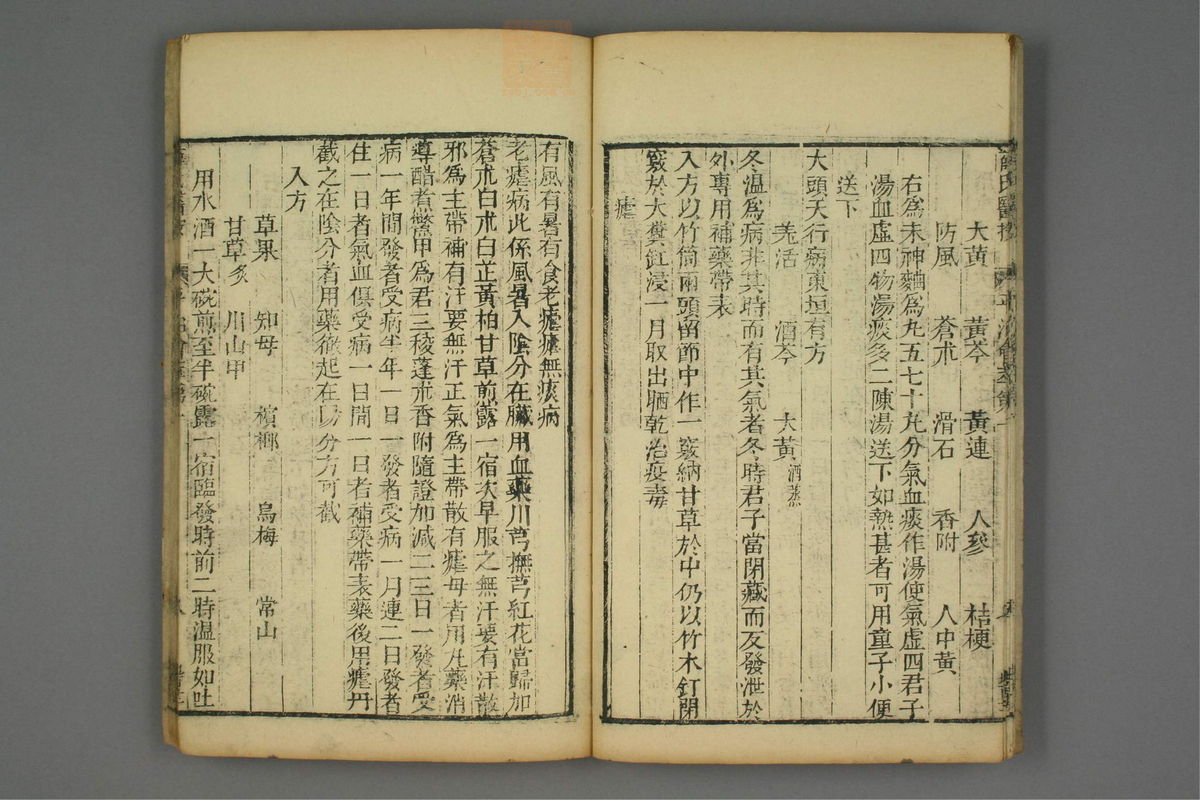 大黃 黃芩 黃連 人參 桔梗
防風 蒼朮 滑石 香附 人中黃
右為末神麯為丸五七十丸分氣血痰作湯使氣虛四君子
湯血虛四物湯痰多二陳湯送下如熱甚者可用童子小便
送下
大頭天行病東垣有方
羗活 酒芩 大黃酒蒸
冬溫為病非其時而有其氣者冬時君子當閉藏而反發泄於
外專用補藥帶表
入方以竹筒兩頭留節中作一竅納甘草於中仍以竹木釘閉
竅於大糞缸浸一月取出晒乾治疫毒
瘧
有風有暑有食老瘧瘧無痰病
老瘧病此係風暑入陰分在臟用血藥川芎撫芎紅花當歸加
蒼朮白朮白芷黃柏甘草煎露一宿次早服之無汗要有汗散
邪為主帶補有汗要無汗正氣為主帶散有瘧母者用丸藥消
導醋煮鱉甲為君三稜蓬朮香附隨證加減二三日一發者受
病一年間發者受病半年一日一發者受病一月連二日發者
住一日者氣血俱受病一日間一日者補藥帶表藥後用瘧丹
截之在陰分者用藥徹起在陽分方可截
入方
草果 知母 檳榔 烏梅 常山
甘草炙 川山甲
用水酒一大碗煎至半碗露一宿臨發時前二時溫服如吐